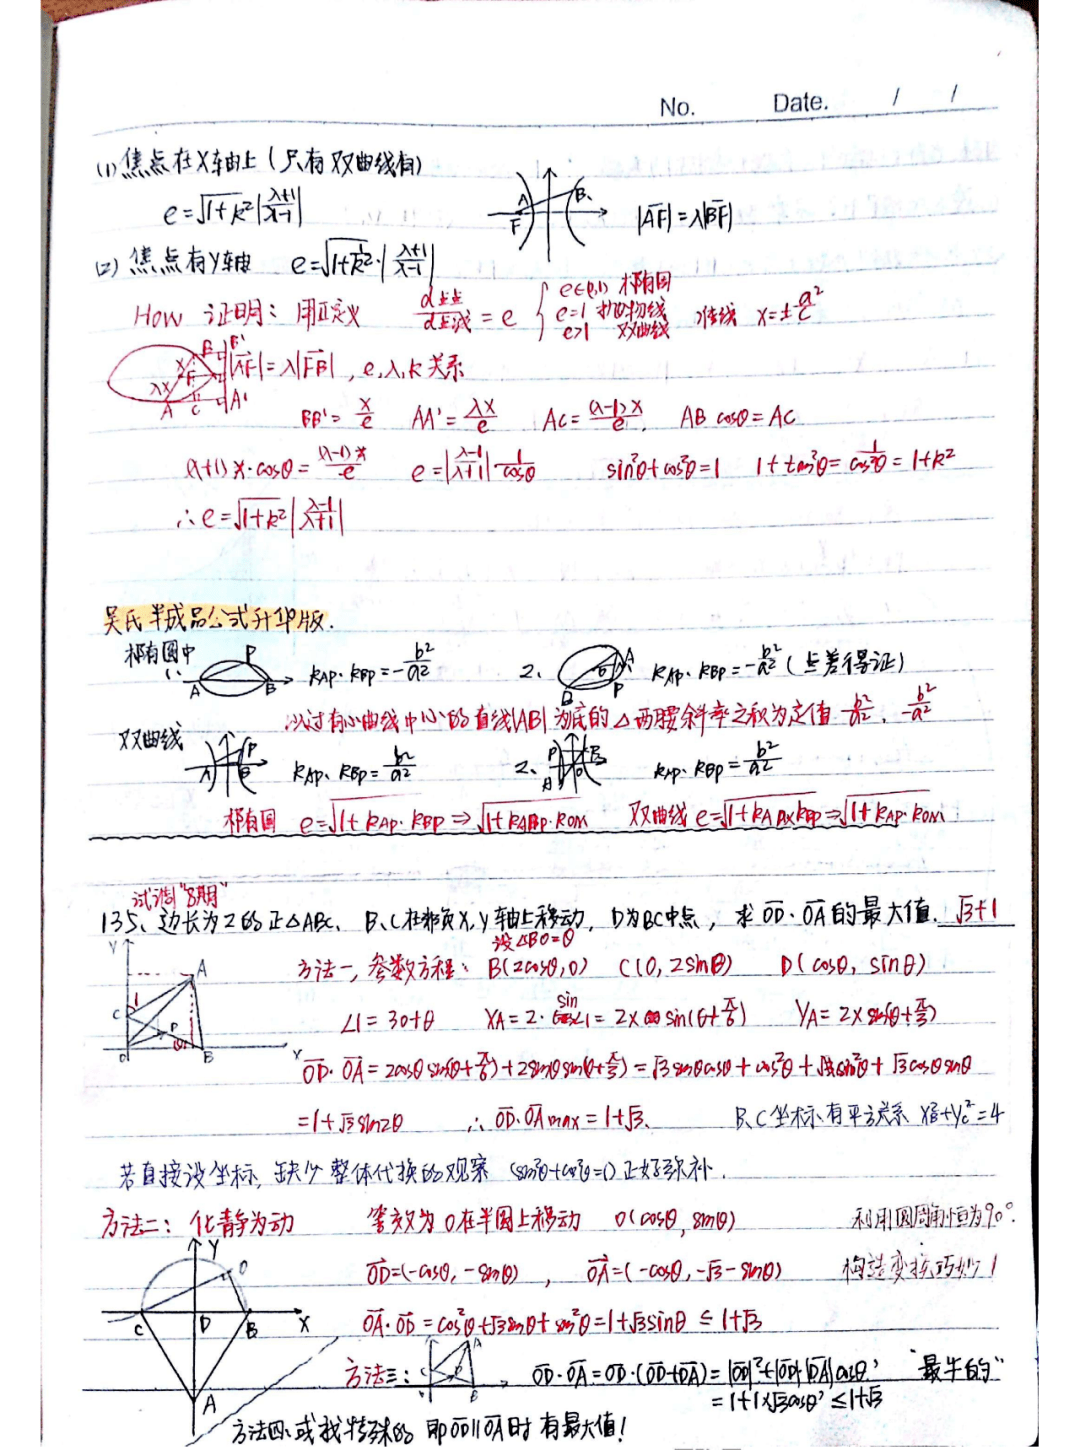 No. Date. / /
(1) 焦点在X轴上 (只有双曲线有)
e=√(1+k²)|λ+1/λ-1|
A B F |AF|=λ|BF|
(2) 焦点有Y轴 e=√(1+1/k²)·|λ+1/λ-1|
How 证明: 用定义 d点点/d点线 = e { e∈(0,1) 椭圆
e=1 抛物线
e>1 双曲线
准线 x=±a²/c
|AF|=λ|FB| , e,λ,k关系
BB'=x/e AA'=λx/e AC=(λ-1)x/e, AB cosθ=AC
(λ+1)x·cosθ=(λ-1)x/e e=|λ-1/λ+1|1/cosθ sin²θ+cos²θ=1 1+tan²θ=1/cos²θ=1+k²
∴e=√(1+k²)|λ-1/λ+1|
吴氏半成品公式升华版.
椭圆中
1、 P A B kAP·kBP=-b²/a² 2、 A O B P kAP·kBP=-b²/a² (点差得证)
以过有心曲线中心的直线|AB|为底的△两腰斜率之积为定值 b²/a²、-b²/a²
双曲线 kAP、kBP=b²/a² 2、 kAP·kBP=b²/a²
椭圆 e=√(1+kAP·kBP)⇒√(1+kAB·kOM) 双曲线 e=√(1+kAP×kBP)⇒√(1+kAP·kOM)
试调"8期"
135、边长为2的正△ABC、B、C在非负X,y轴上移动,D为BC中点,求OD·OA的最大值. √3+1
设∠BO=θ
方法一,参数方程: B(2cosθ,0) C(0,2sinθ) D(cosθ,sinθ)
∠1=30+θ XA=2·sin∠1=2×sin(θ+π/6) YA=2×sin(θ+π/3)
OD·OA=2cosθsin(θ+π/6)+2sinθsin(θ+π/3)=√3sinθcosθ+cos²θ+sin²θ+√3cosθsinθ
=1+√3sin2θ ∴OD·OAmax=1+√3. B、C坐标有平方关系 XB²+YC²=4
若直接设坐标,缺少整体代换的观察 (sin²θ+cos²θ=1)正好弥补.
方法二: 化静为动 等效为O在半圆上移动 O(cosθ,sinθ) 利用圆周角恒为90°.
OD=(-cosθ,-sinθ) , OA=(-cosθ,-√3-sinθ) 构造变换巧妙!
OA·OD=cos²θ+√3sinθ+sin²θ=1+√3sinθ≤1+√3
Y O C D B X A
方法三: OD·OA=OD·(OD+DA)=|OD|²+|OD||DA|cosθ' "最牛的"
=1+1×√3cosθ'≤1+√3
方法四:或找特殊的 即OD∥OA时有最大值!